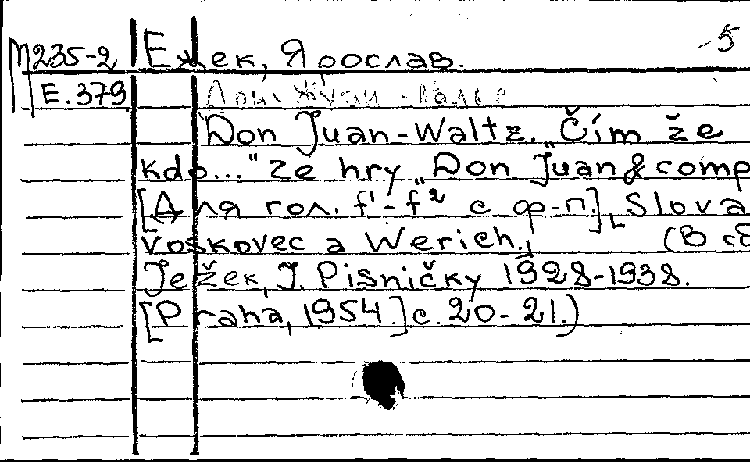 -5
М235-2 Ежек, Ярослав.
Е.379 Дон Жуан - вальс
Don Juan-Waltz. „Čím že
kdo..." Ze hry „Don Juan & comp
[Для гол. f¹-f² с ф-п], Slova
Voskovec a Werich. (В сб
Ježek, J. Pisničky 1928-1938.
[Praha, 1954.] с. 20-21.)